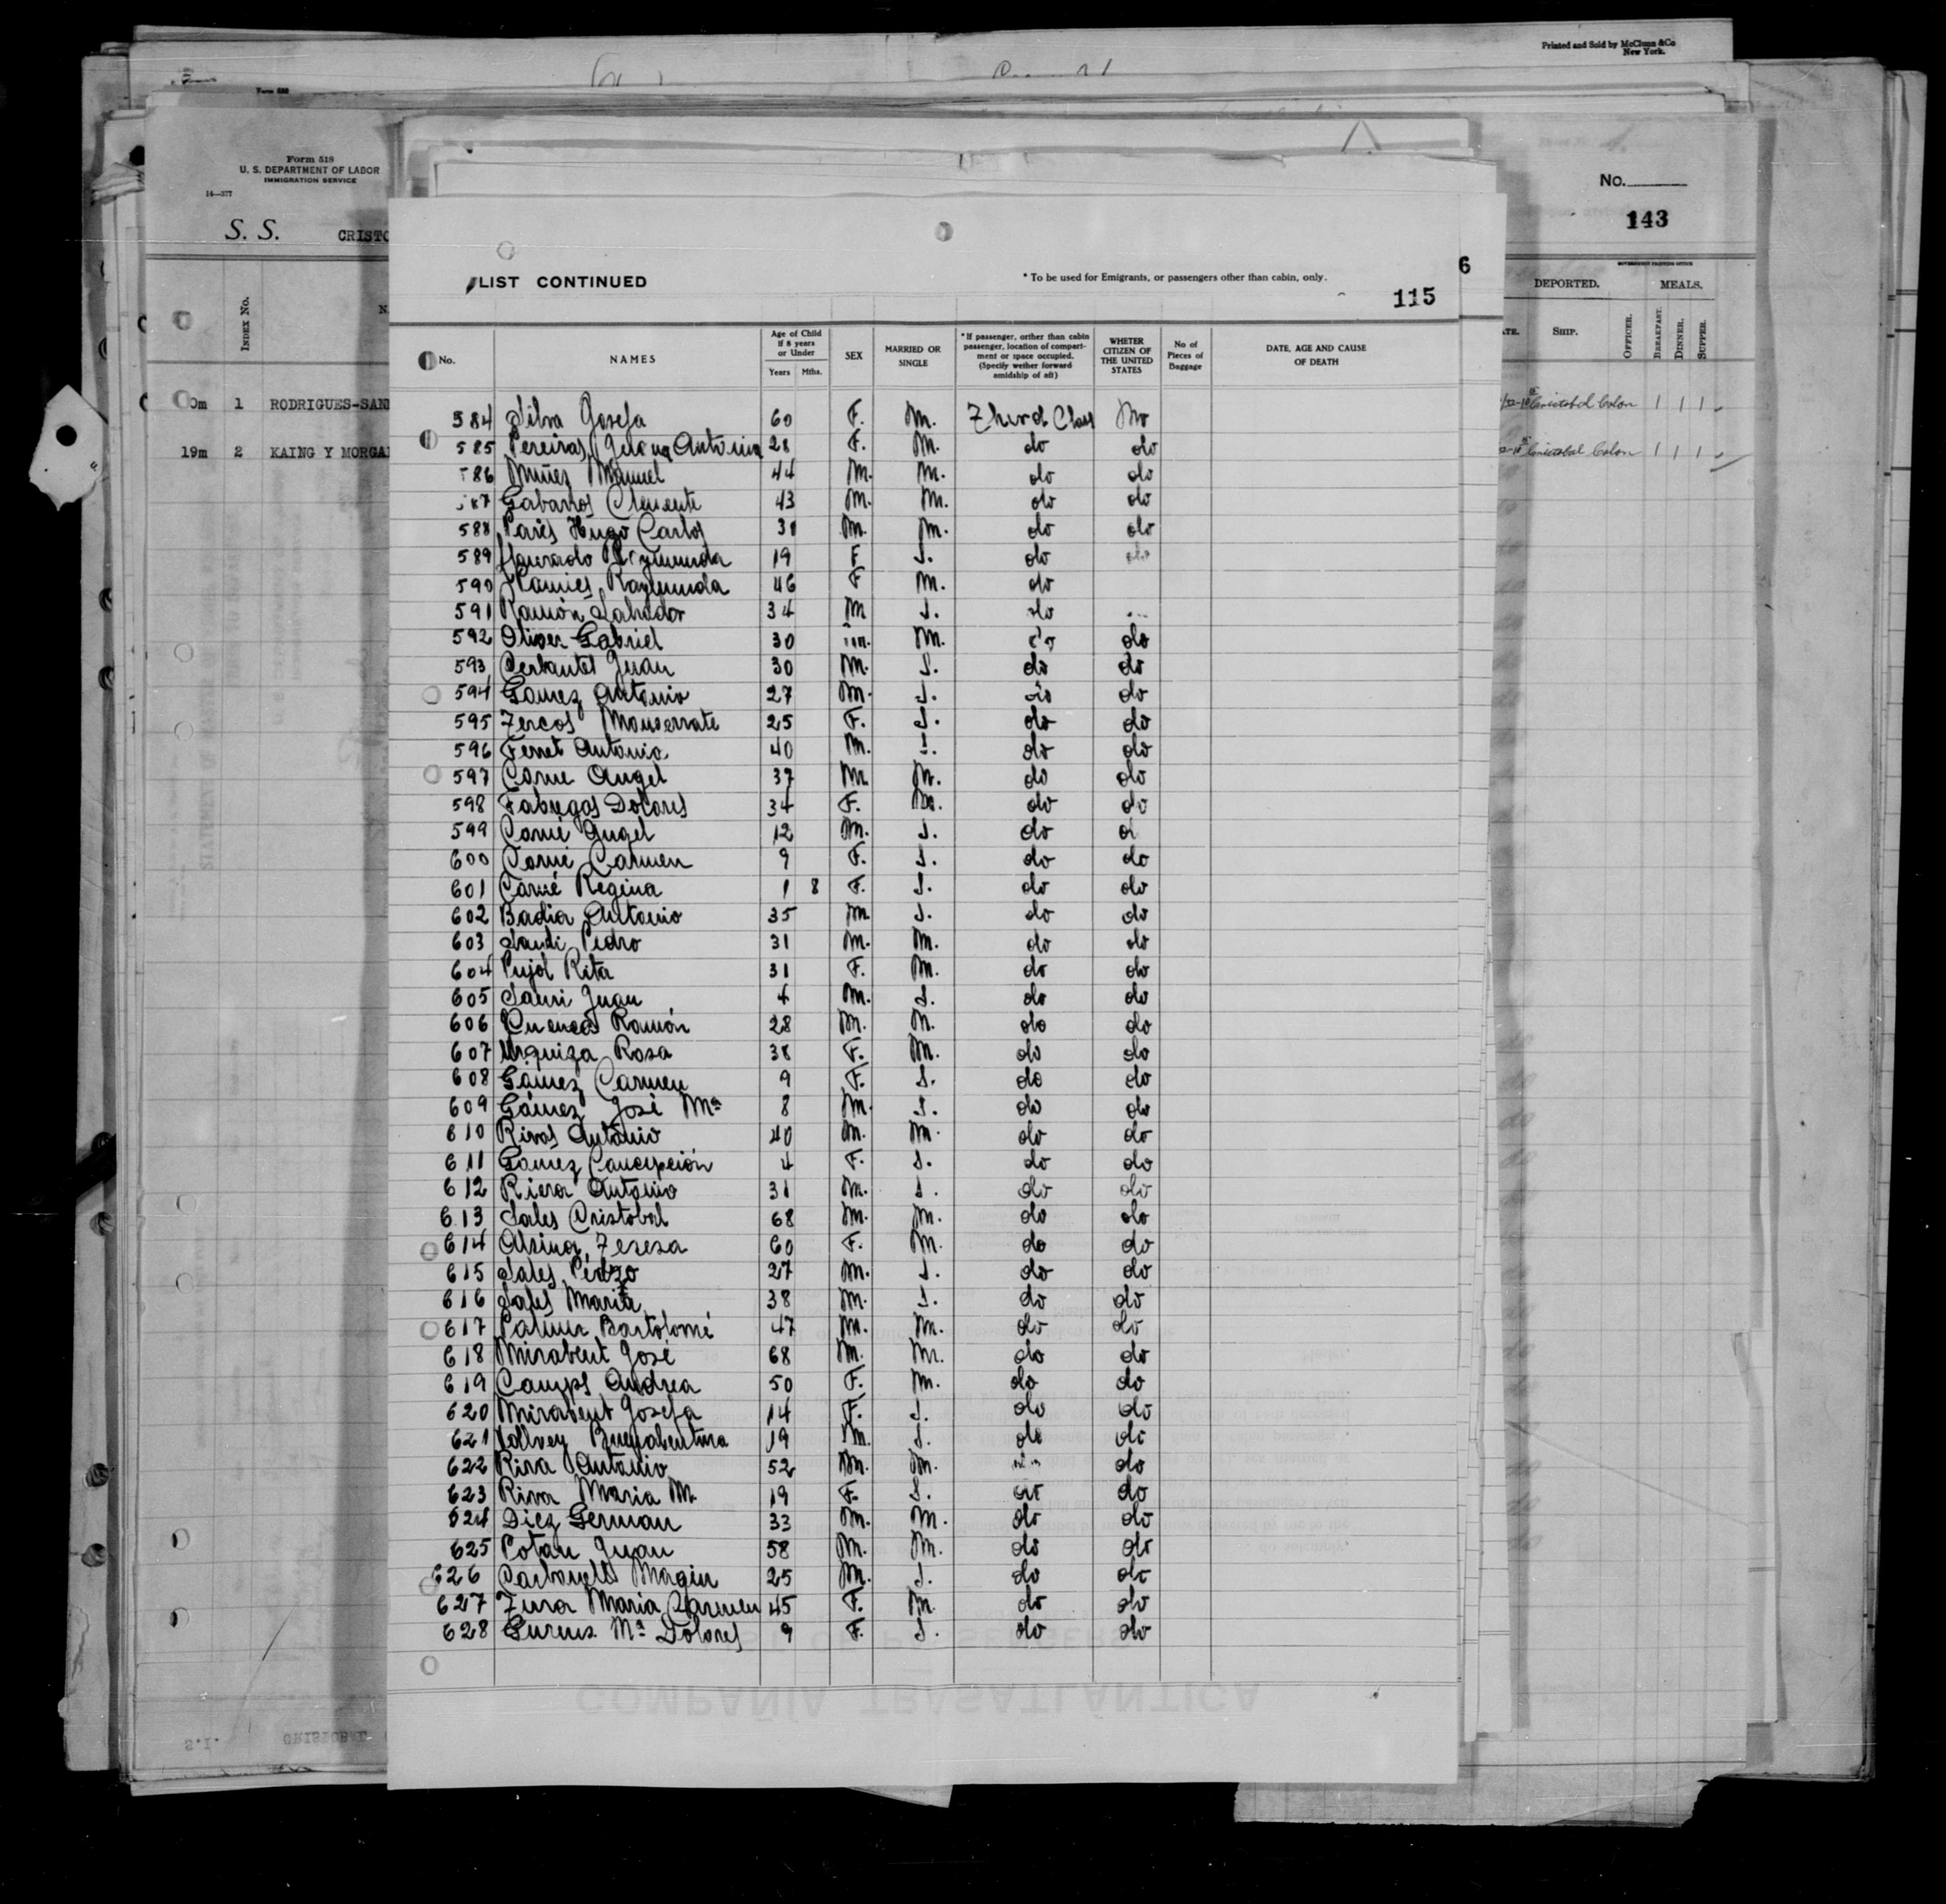 Printed and Sold by McClunn & Co
New York.
Form 518
U. S. DEPARTMENT OF LABOR
IMMIGRATION SERVICE
14—577
S. S. CRISTO
No.
143
INDEX No.
DEPORTED. MEALS.
SHIP. OFFICER. BREAKFAST. DINNER. SUPPER.
1 RODRIGUES-SAN
Cristobal Colon 1 1 1
19m 2 KAING Y MORGA
Cristobal Colon 1 1 1
6
LIST CONTINUED
* To be used for Emigrants, or passengers other than cabin, only.
115
No. NAMES Age of Child if 8 years or Under Years Mths. SEX MARRIED OR SINGLE * If passenger, orther than cabin passenger, location of compartment or space occupied. (Specify wether forward amidship of aft) WHETER CITIZEN OF THE UNITED STATES No of Pieces of Baggage DATE, AGE AND CAUSE OF DEATH
584 Silva Josefa 60 F. M. Third Class No
585 Pereiras Antonia 28 F. M. do do
586 Muñez Manuel 44 M. M. do do
587 Gabarros Clemente 43 M. M. do do
588 Parés Hugo Carlos 31 M. M. do do
589 19 F S. do do
590 Raymunda 46 F M. do
591 Ramón Salvador 34 M S. do
592 Oliver Gabriel 30 M. M. do do
593 Cerbantes Juan 30 M. S. do do
594 Gomez Antonio 27 M. S. do do
595 Tercos Monserrate 25 F. S. do do
596 Ferret Antonio 40 M. S. do do
597 Carne Angel 37 M. M. do do
598 Fabregas Dolores 34 F. M. do do
599 Carné Angel 12 M. S. do do
600 Carné Carmen 9 F. S. do do
601 Carné Regina 1 8 F. S. do do
602 Badia Antonio 35 M S. do do
603 Pedro 31 M. M. do do
604 Pujol Rita 31 F. M. do do
605 Juan 4 M. S. do do
606 Cuenca Ramón 28 M. M. do do
607 Urquiza Rosa 38 F. M. do do
608 Gámez Carmen 9 F. S. do do
609 Gámez José Mª 8 M. S. do do
610 Rivas Antonio 40 M. M. do do
611 Gamez Concepción 4 F. S. do do
612 Riera Antonio 31 M. S. do do
613 Sales Cristobal 68 M. M. do do
614 Alsina Teresa 60 F. M. do do
615 Sales Pedro 27 M. S. do do
616 Sales Maria 38 M. S. do do
617 Palmer Bartolomé 47 M. M. do do
618 Mirabent José 68 M. M. do do
619 Camps Andrea 50 F. M. do do
620 Mirabent Josefa 14 F. S. do do
621 Buenabentura 19 M. S. do do
622 Riva Antonio 52 M. M. do do
623 Riva Maria M. 19 F. S. do do
624 Diez German 33 M. M. do do
625 Potau Juan 58 M. M. do do
626 Carbonell Magin 25 M. S. do do
627 Maria Carmen 45 F. M. do do
628 Mª Dolores 9 F. S. do do
COMPAÑIA TRASATLANTICA